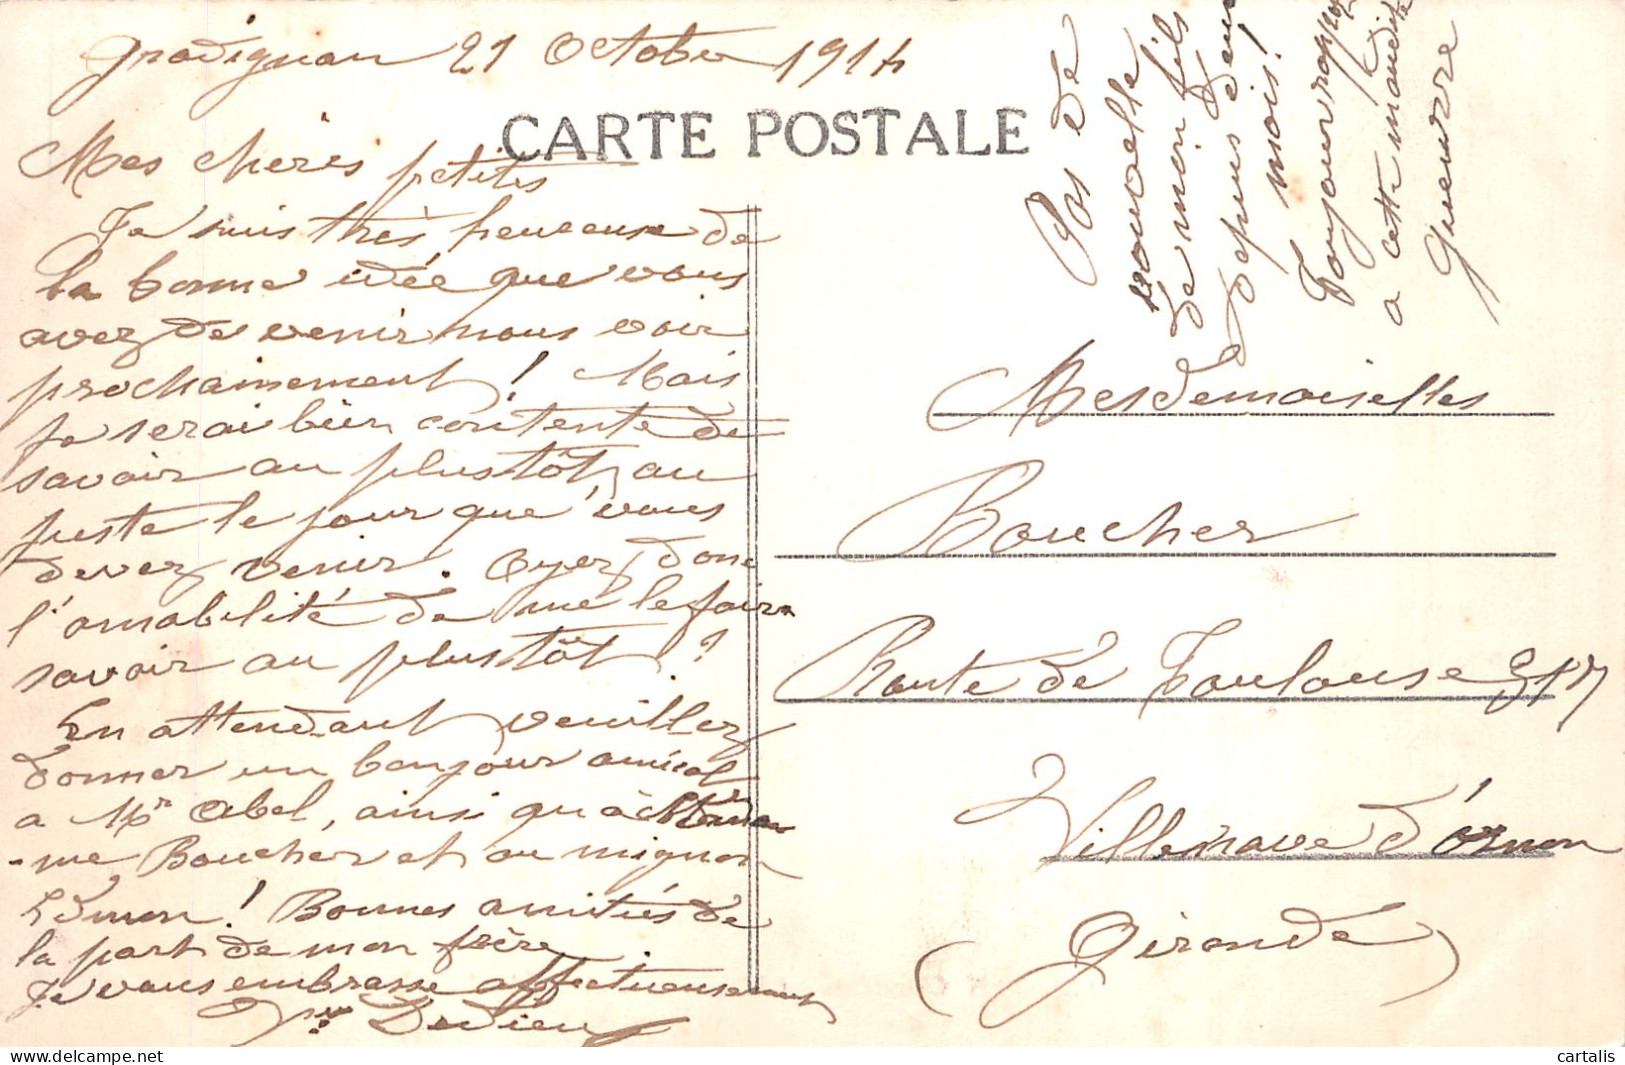 Gradignan 21 Octobre 1914
CARTE POSTALE
Mes chères petites
Je suis très heureuse de
la bonne idée que vous
avez de venir nous voir
prochainement ! Mais
je serai bien contente de
savoir au plus tôt, au
juste le jour que vous
devez venir. Ayez donc
l'amabilité de me le faire
savoir au plus tôt ?
En attendant veuillez
donner un bonjour amical
a Mr Abel, ainsi qu'à Mada
-me Boucher et au mignon
Edmon ! Bonnes amitiés de
la part de mon frère
Je vous embrasse affectueusement
Dedieu
Pas de
nouvelle
de mon fils
depuis deux
mois !
Toujours
a cette maudite
guerre
Mesdemoiselles
Boucher
Route de Toulouse
Villenave d'Ornon
( Gironde )
delcampe.net
cartalis